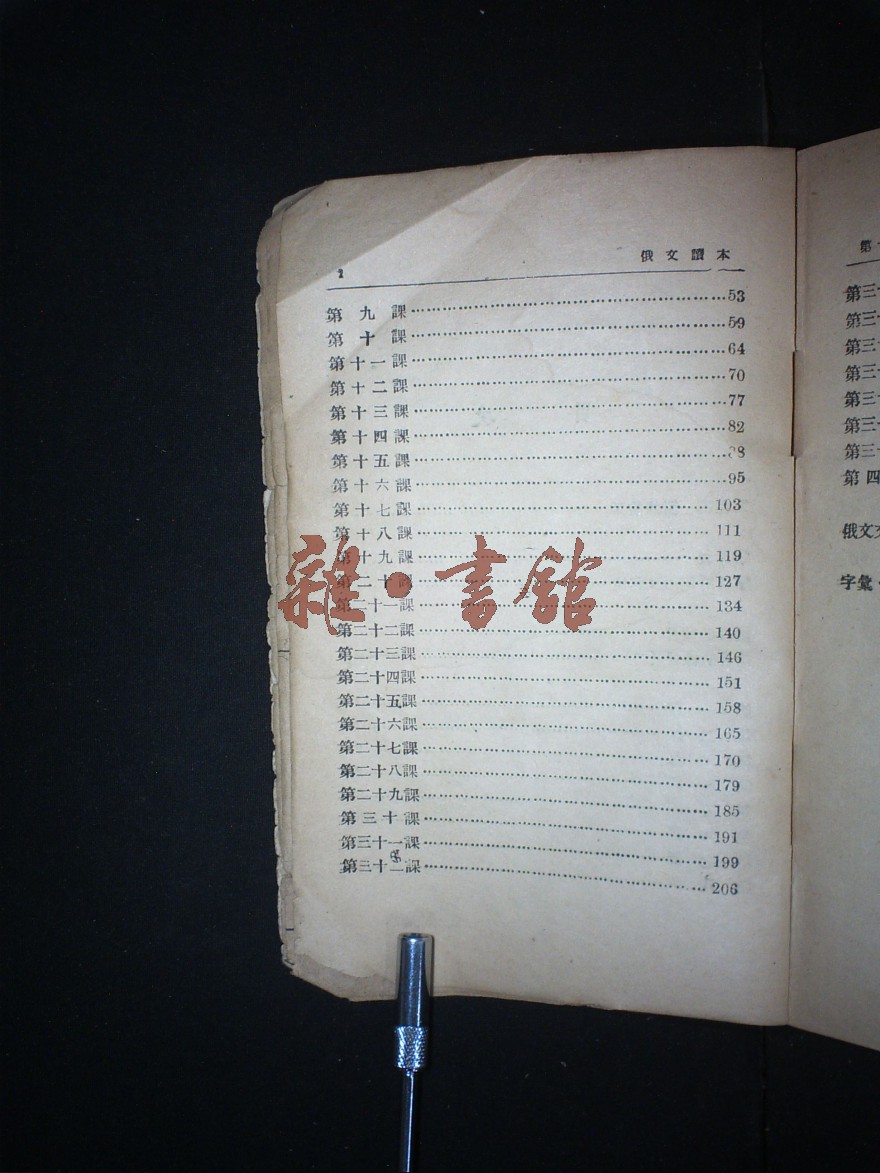 俄文讀本
2
第九課……53
第十課……59
第十一課……64
第十二課……70
第十三課……77
第十四課……82
第十五課……88
第十六課……95
第十七課……103
第十八課……111
第十九課……119
第二十課……127
第二十一課……134
第二十二課……140
第二十三課……146
第二十四課……151
第二十五課……158
第二十六課……165
第二十七課……170
第二十八課……179
第二十九課……185
第三十課……191
第三十一課……199
第三十二課……206
雜·書館
第
第三
第三
第三
第三
第三
第三
第三
第四
俄文
字彙